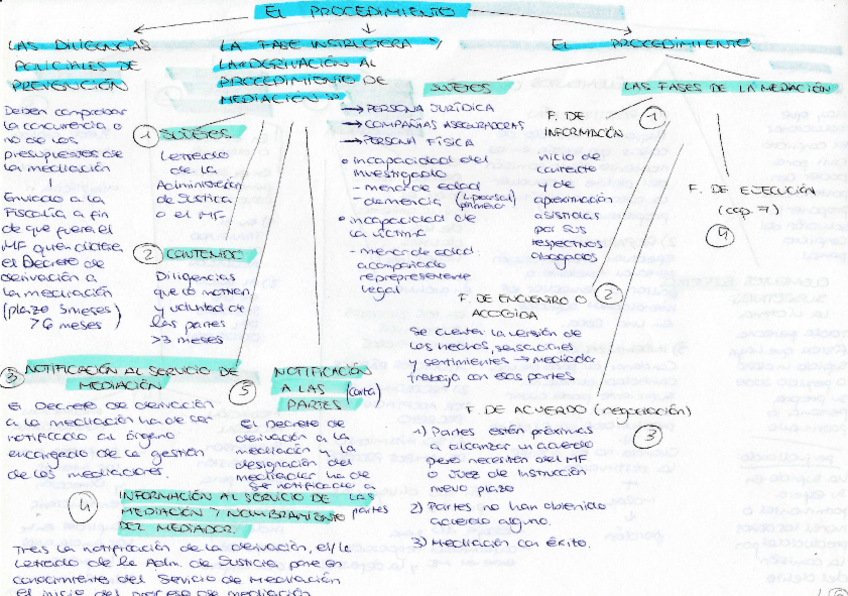 EL PROCEDIMIENTO
LAS DILIGENCIAS
POLICIALES DE
PREVENCIÓN
Deben comprobar
la concurrencia, o
no de los
presupuestos de
la mediación
Enviado a la
Fiscalía a fin
de que fuera el
MF quien dictase
el Decreto de
derivación a
la mediación
(plazo 3 meses)
> 6 meses
LA FASE INSTRUCTORA Y
LA DERIVACIÓN AL
PROCEDIMIENTO DE
MEDIACIÓN
1 SUJETOS
Letrado
de la
Administración
de Justicia
o el MF
2 CONTENIDO
Diligencias
que lo motivan
y voluntad de
las partes
>3 meses
3 NOTIFICACIÓN AL SERVICIO DE
MEDIACIÓN
El Decreto de derivación
a la mediación ha de ser
notificado al órgano
encargado de la gestión
de los mediadores.
5 NOTIFICACIÓN
A LAS (carta)
PARTES
El Decreto de
derivación a la
mediación y la
designación del
mediador ha de
se notificado a
las
partes
4 INFORMACIÓN AL SERVICIO DE
MEDIACIÓN Y NOMBRAMIENTO
DEL MEDIADOR.
Tras la notificación de la derivación, el/la
Letrado de la Adm. de Justicia pone en
conocimientos del Servicio de Mediación
el inicio del proceso de mediación
EL PROCEDIMIENTO
SUJETOS
→ PERSONA JURÍDICA
→ COMPAÑÍAS ASEGURADORAS
→ PERSONA FÍSICA
o incapacidad del
investigado
- menor de edad
- demencia
o incapacidad de
la víctima
- menor de edad:
acompañado
reprepresentente
legal
LAS FASES DE LA MEDIACIÓN
F. DE
INFORMACIÓN 1
inicio de
contacto
y de
aproximación
asistidas
por sus
respectivos
abogados
F. DE ENCUENTRO O 2
ACOGIDA
Se cuenta la versión de
los hechos, sensaciones
y sentimientos → mediador
trabaja con esas partes
F. DE ACUERDO (negociación)
3
1) Partes están próximas
a alcanzar un acuerdo
pero necesiten del MF
o Juez de Instrucción
nuevo plazo
2) Partes no han obtenido
acuerdo alguno.
3) Mediación con éxito.
F. DE EJECUCIÓN
(cap. 7)
4